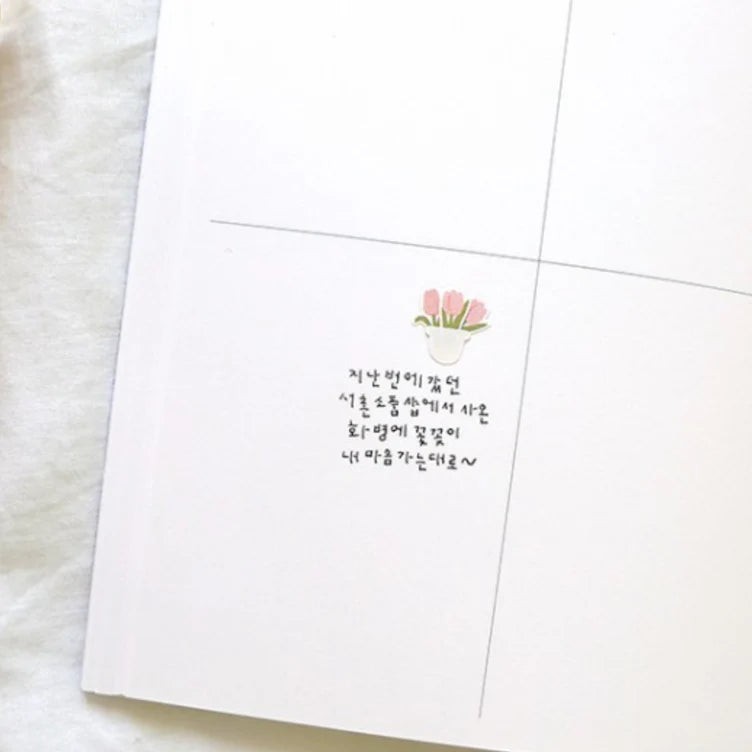 지난번에 갔던
서촌 소품샵에서 사온
화병에 꽃꽂이
내 마음 가는대로~